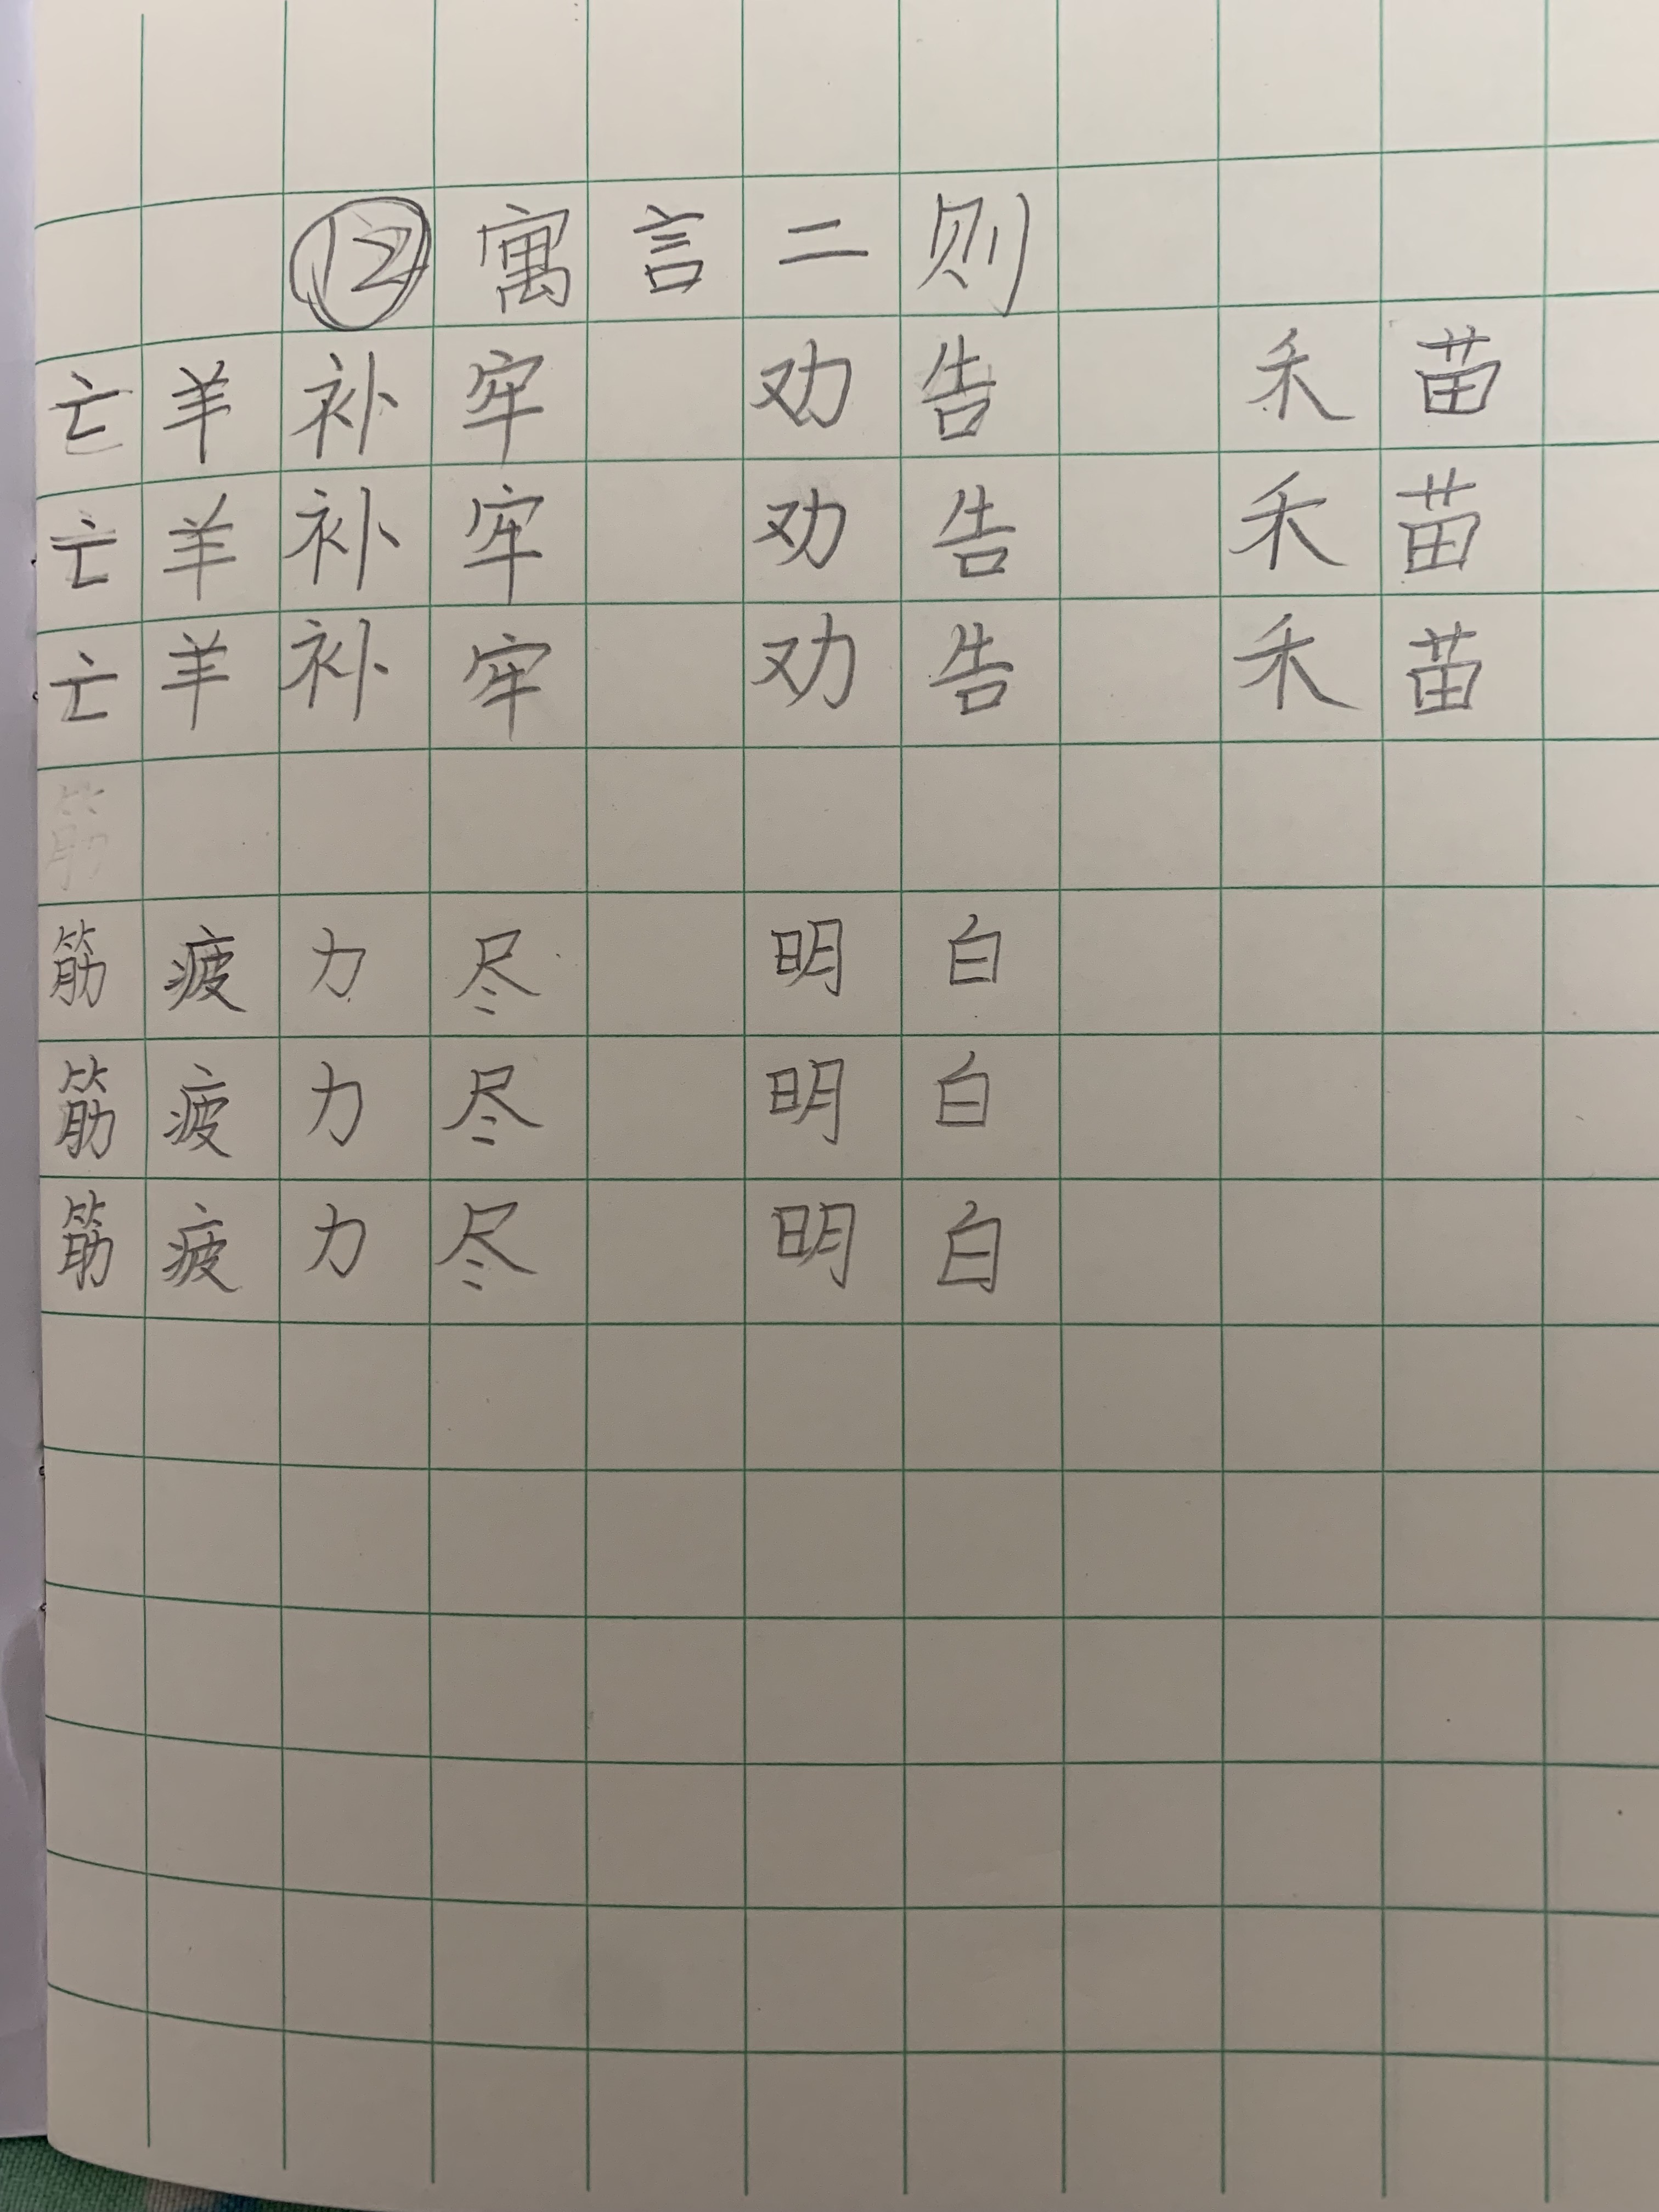 ⑫ 寓言二则
亡羊补牢 劝告 禾苗
亡羊补牢 劝告 禾苗
亡羊补牢 劝告 禾苗
筋
筋疲力尽 明白
筋疲力尽 明白
筋疲力尽 明白